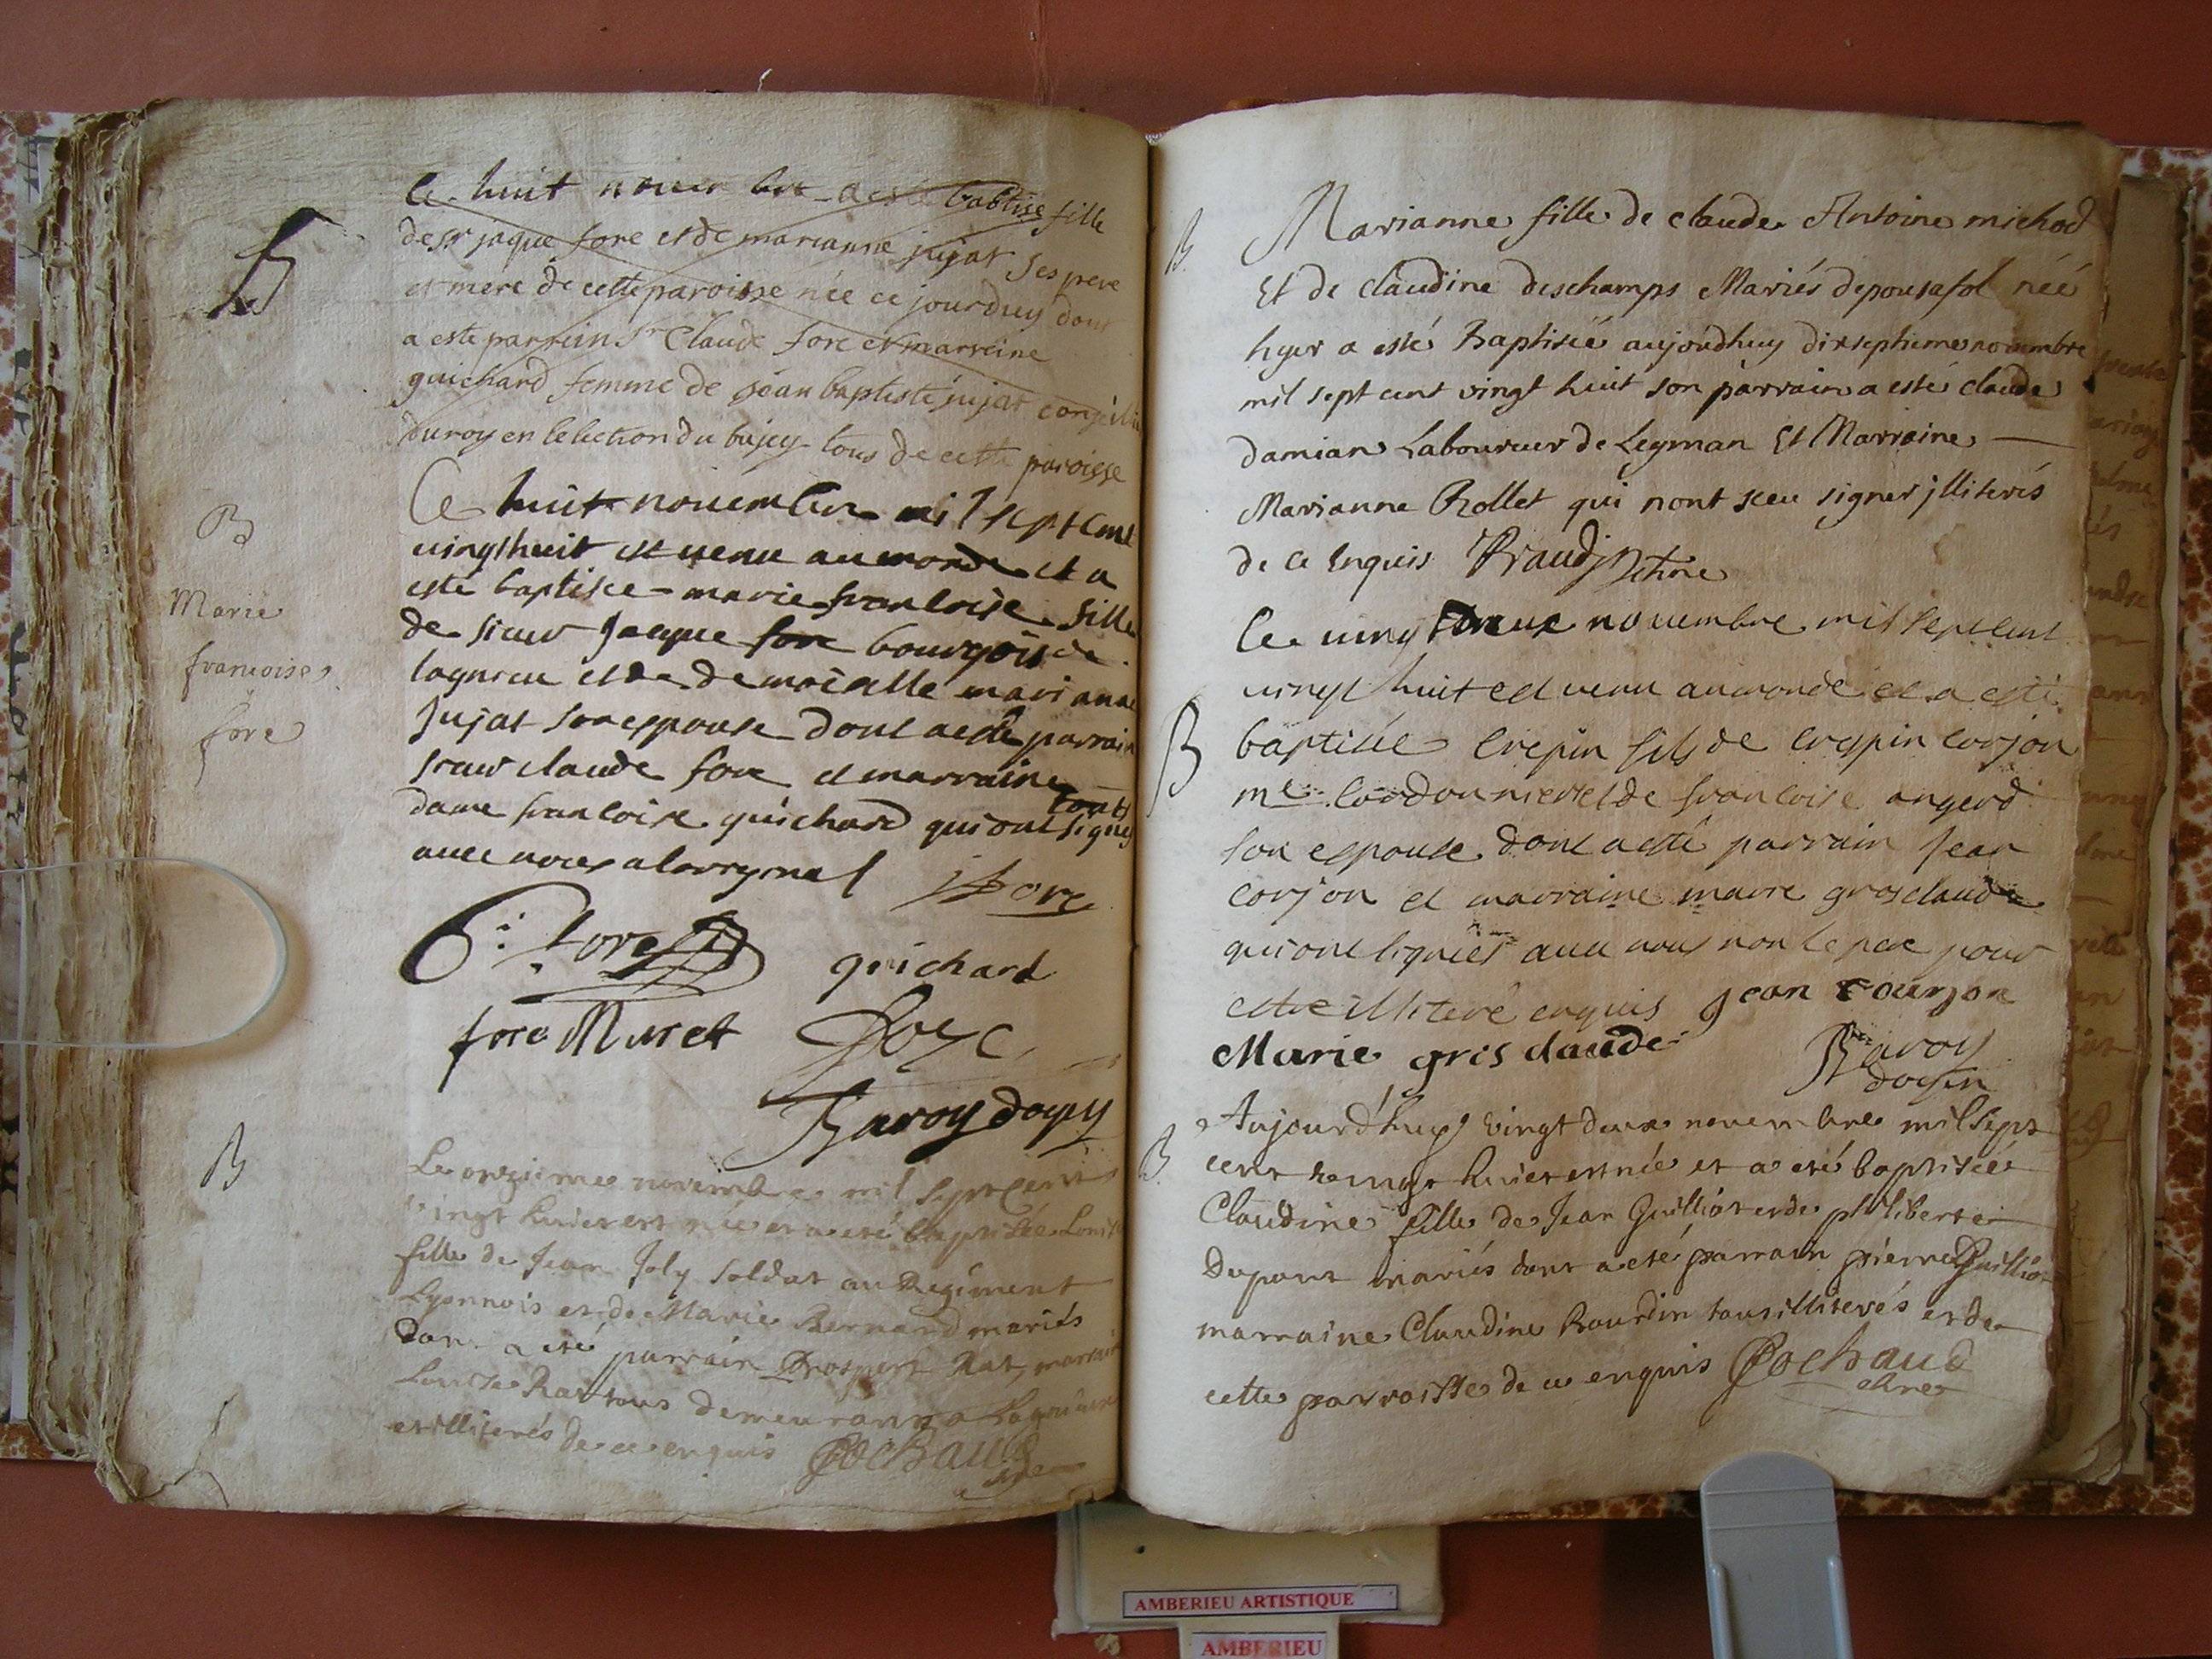 B
Ce huit novembre a esté baptisé fille
de Sr jaque fore et de marianne jujat ses pere
et mere de cette paroisse née ce jourduy dont
a este parrein Sr Claude fore et marreine
guichard femme de jean baptiste jujat conseille
du roy en lelection du bujey tous de cette paroisse
B
Marie
francoise
fore
Ce huit novembre mil sept cent
vingthuit est venu au monde et a
esté baptisee marie francoise fille
de sieur Jacque fore bourgois de
lagnieu et de demoiselle marianne
Jujat son espouse dont a esté parrain
sieur claude fore et marraine
dame francoise guichard qui ont touts signés
avec nous a lorrygnal
fore
C: fore
guichard
fore Muret
fore
Baroy doyen
B
Le onzieme novembre mil sept cent
vingt huict est née et a eté baptisée Louise
fille de Jean Joly soldat au Regiment
Lyonnois et de Marie Bernard mariés
dont a eté parrain Prospert Rat, marraine
Louise Rat tous demeurants a
et illiterés de ce enquis Cochaud
B
Marianne fille de claude Antoine michod
Et de claudine deschamps Mariés de pousafol néé
hyer a esté Baptiséé aujoudhuy dixseptieme novembre
mil sept cent vingt huit son parrain a esté claude
damian Laboureur de Leyman Et Marraine
Marianne Rollet qui nont sceu signer jlliterés
de ce Enquis
B
Ce vingt deux novembre mil sept cent
vingt huit est venu au monde et a esté
baptisée Crepin fils de Crespin corjon
me Cordounier et de francoise angerd
son espouse dont a esté parrain Jean
corjon et marraine marie grosclaude
qui ont signées avec nous non le pere pour
estre illiteré enquis Jean Courjon
Marie gris claude
Baroy
doyen
B
Aujourd'huy vingt deux novembre mil sept
cent vingt huict est née et a eté baptisée
Claudine fille de Jean Guilliot et de philiberte
Dupont mariés dont a eté parrain pierre Guilliot
marraine Claudine Bourdin tous illiterés et de
cette parroisse de ce enquis Cochaud
AMBERIEU ARTISTIQUE
AMBERIEU